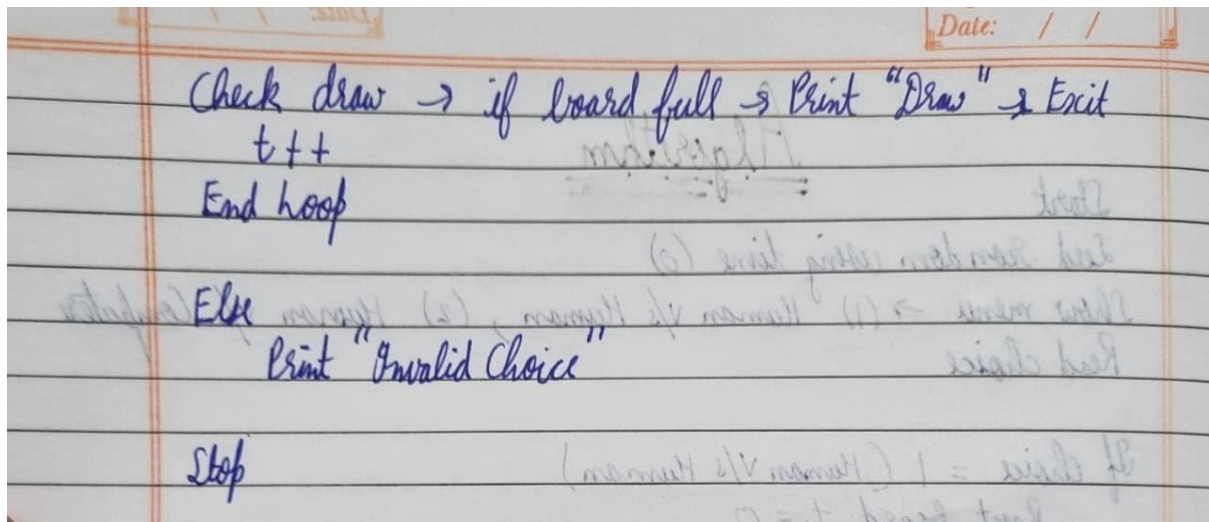 Date: / /
Check draw → if board full → Print "Draw" & Exit
t++
End Loop
Else
Print "Invalid Choice"
Stop